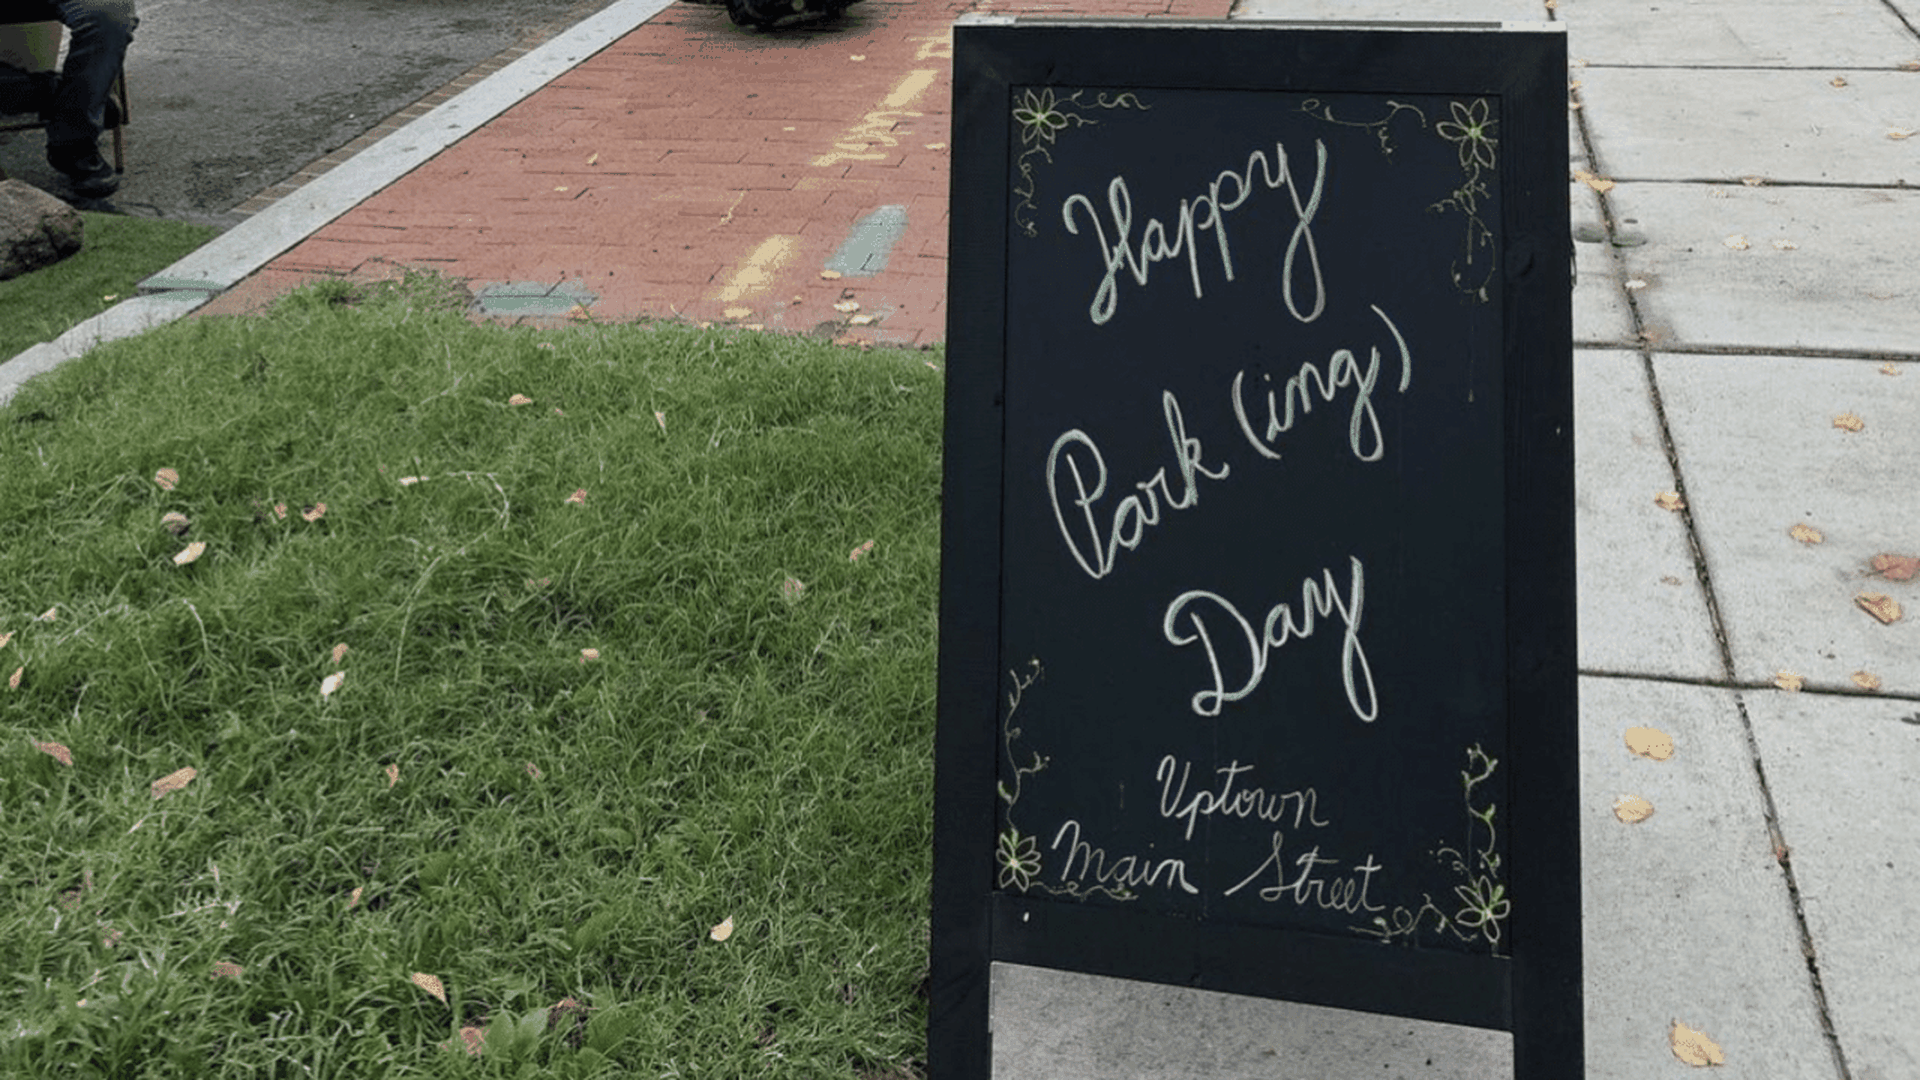 Happy
Park(ing)
Day
Uptown
Main Street